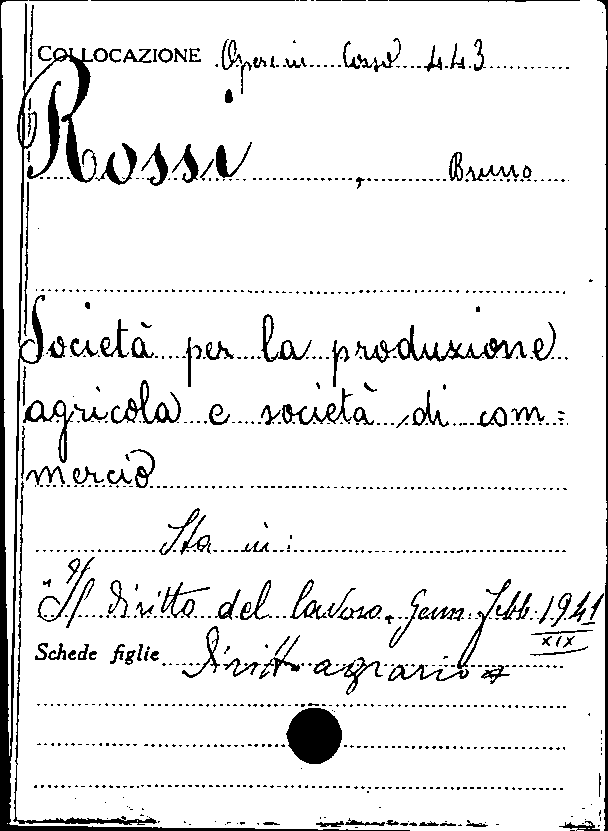 COLLOCAZIONE Opere in Corso 443
Rossi, Bruno
Società per la produzione
agricola e società di com=
mercio
Sta in:
"Il diritto del lavoro. Genn. Febb. 1941
XIX
Schede figlie Diritto agrario